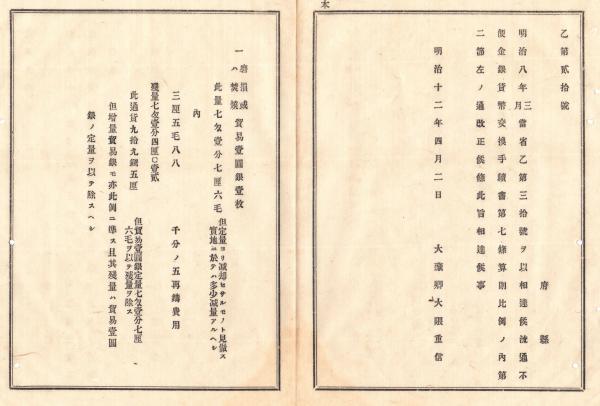 乙第貳拾號
府縣
明治八年三月當省乙第三拾號ヲ以相達候流通不
便金銀貨幣交換手續書第七條算則比例ノ內第
二節左ノ通改正候條此旨相達候事
明治十二年四月二日　大藏卿大隈重信
一磨損或ハ焚燒貿易壹圓銀壹枚
此量七匁壹分七厘六毛
但定量ヨリ減却セサルモノト見做ス
實地ニ於テハ多少減量アルヘシ
內
三厘五毛八八　千分ノ五再鑄費用
殘量七匁壹分四厘〇壹貳
但貿易壹圓銀定量七匁壹分七厘
六毛ヲ以テ殘量ヲ除ス
此通貨九拾九錢五厘
但增量貿易銀モ亦此例ニ準ス且其殘量ハ貿易壹圓
銀ノ定量ヲ以テ除スヘシ